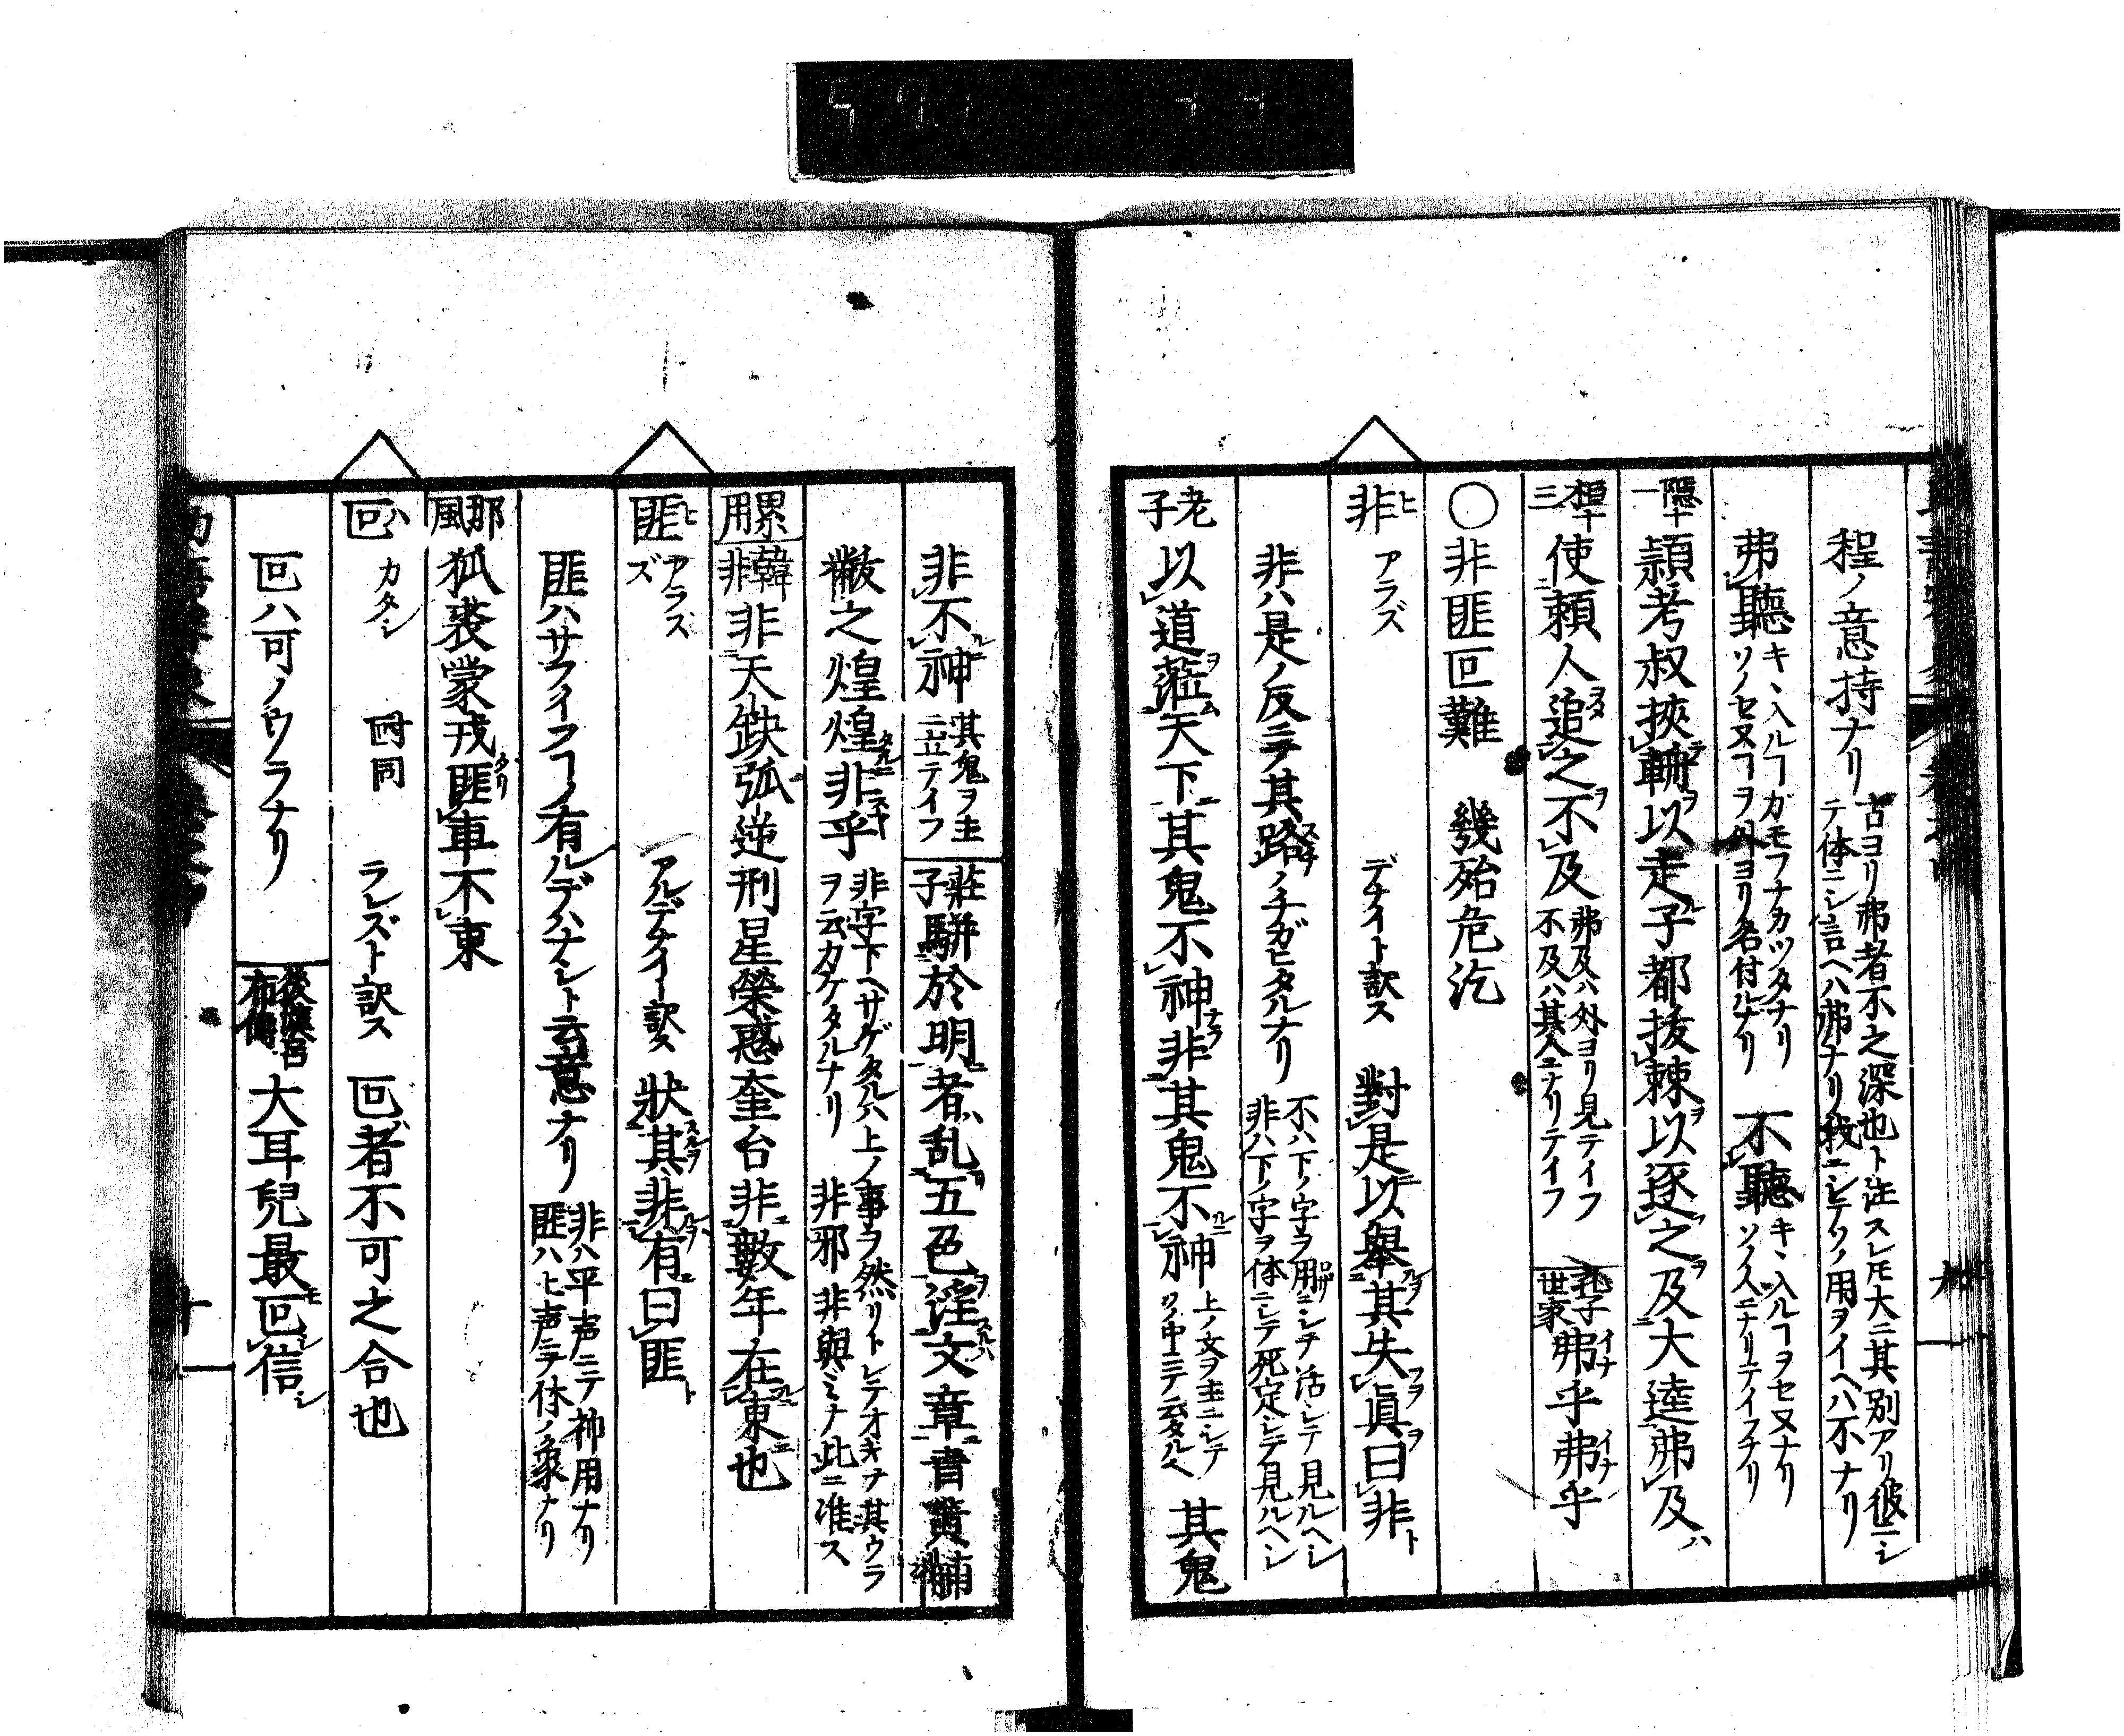 程ノ意持ナリ 古ヨリ弗者不之深也ト注スレモ大ニ其別アリ彼ニシ
テ体ニシ言ヘハ弗ナリ我ニシテソノ用ヲイヘハ不ナリ
弗聴 キヽ入ルヿガモフナカツタナリ
ソノセヌヿヲ外ヨリ名付ルナリ
不聴 キヽ入ルヿヲセヌナリ
ソノ人ニナリテイフナリ
隠十一 頴考叔挾輈以走子都抜棘以逐之及大逵弗及
桓十三 使頼人追之不及 弗及ハ外ヨリ見テイフ
不及ハ其人ニナリテイフ
孔子世家 弗乎弗乎
○非匪叵難 幾殆危汔
非 ヒ アラズ デナイト訳ス 對是以舉其失眞曰非
非ハ是ノ反ニテ其路ノチガヒタルナリ 不ハ下ノ字ヲ用ニシテ活シテ見ルヘシ
非ハ下ノ字ヲ体ニシテ死定シテ見ルヘシ
老子 以道蒞天下其鬼不神非其鬼不神 上ノ文ヲ主ニシテ
ソノ中ニテ云タルヘ
其鬼
非不神 其鬼ヲ主
ニ立テイフ
莊子 駢於明者乱五色淫文章青黄黼
黻之煌煌非乎 非字下ヘサゲタルハ上ノ事ヲ然リトシテオキテ其ウラ
ヲ云カケタルナリ 非邪 非與ミナ此ニ准ス
累用 韓非 非天缺弧逆刑星榮惑奎台非數年在東也
匪 ヒ アラズ ズ アルデナイト訳ス 狀其非有曰匪
匪ハサフイフヿノ有ルデハナシト云意ナリ 非ハ平声ニテ神用ナリ
匪ハヒ声ニテ体ノ象ナリ
邶風 狐裘蒙戎匪車不東
叵 ハ カタシ 同 ラレズト訳ス 叵者不可之合也
叵ハ可ノウラナリ 後漢呂布傳 大耳兒最叵信